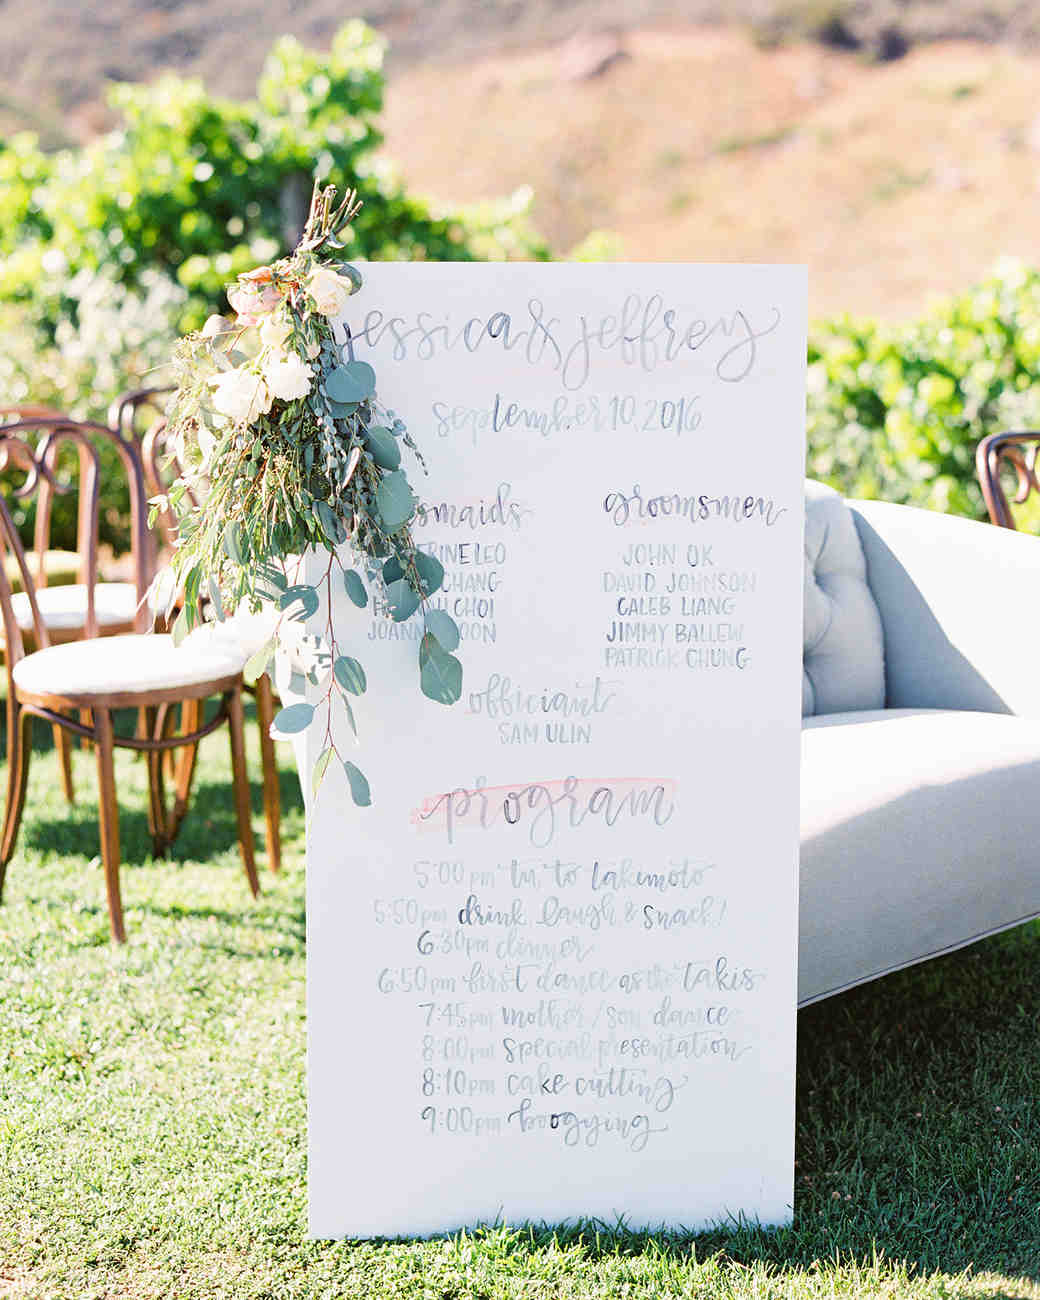 jessica & jeffrey
september 10, 2016
groomsmen
LEO
JOHN OK
CHANG
DAVID JOHNSON
CHOI
CALEB LIANG
JIMMY BALLEW
PATRICK CHUNG
officiant
SAM ULIN
program
5:00 pm to
5:50 pm drink, laugh & snack!
6:30pm dinner
6:50pm first dance as the takis
7:45pm mother/son dance
8:00pm special presentation
8:10pm cake cutting
9:00pm boogying